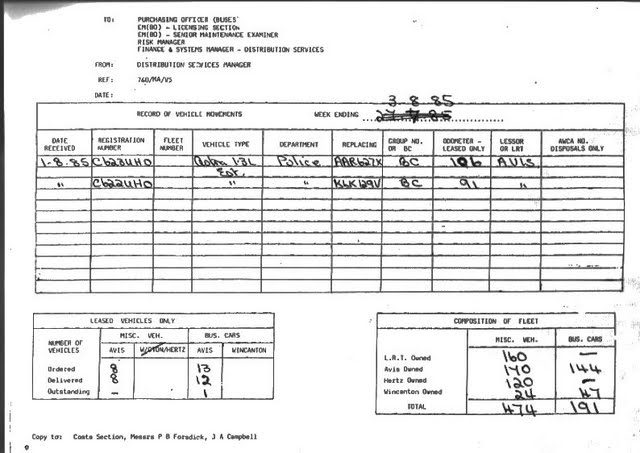 TO: PURCHASING OFFICER (BUSES)
EM(BO) - LICENSING SECTION
EM(BO) - SENIOR MAINTENANCE EXAMINER
RISK MANAGER
FINANCE & SYSTEMS MANAGER - DISTRIBUTION SERVICES
FROM: DISTRIBUTION SERVICES MANAGER
REF: 760/MA/VS
DATE:
3-8-85
RECORD OF VEHICLE MOVEMENTS WEEK ENDING 27-7-85
DATE RECEIVED REGISTRATION NUMBER FLEET NUMBER VEHICLE TYPE DEPARTMENT REPLACING GROUP NO. OR BC ODOMETER - LEASED ONLY LESSOR OR LRT AWCA NO. DISPOSALS ONLY
1-8-85 C623UHO Astra 1.3L Est. Police AAR627X BC 106 AVIS
" C622UHO " " KLK129V BC 91 "
LEASED VEHICLES ONLY
NUMBER OF VEHICLES MISC. VEH. BUS. CARS
AVIS W/GTON/HERTZ AVIS WINCANTON
Ordered 8 13
Delivered 8 12
Outstanding - 1
COMPOSITION OF FLEET
MISC. VEH. BUS. CARS
L.R.T. Owned 160 -
Avis Owned 170 144
Hertz Owned 120 -
Wincanton Owned 24 47
TOTAL 474 191
Copy to: Costs Section, Messrs P B Forsdick, J A Campbell